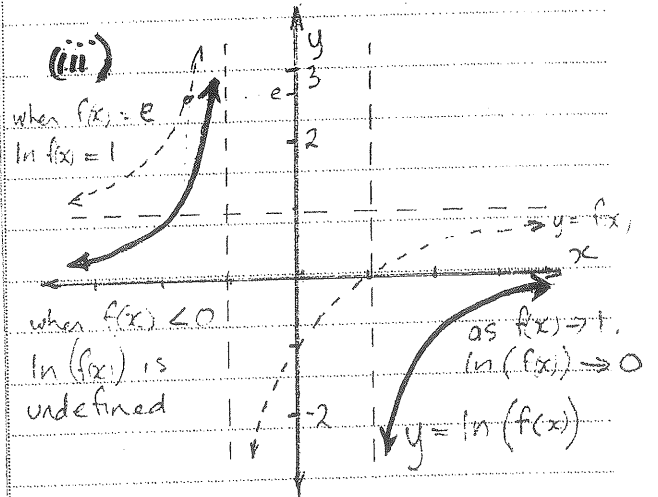 (iii)
y
3
e
2
when f(x) = e
ln f(x) = 1
y = f(x)
x
when f(x) < 0
ln (f(x)) is
undefined
as f(x) → 1.
ln (f(x)) → 0
-2
y = ln (f(x))